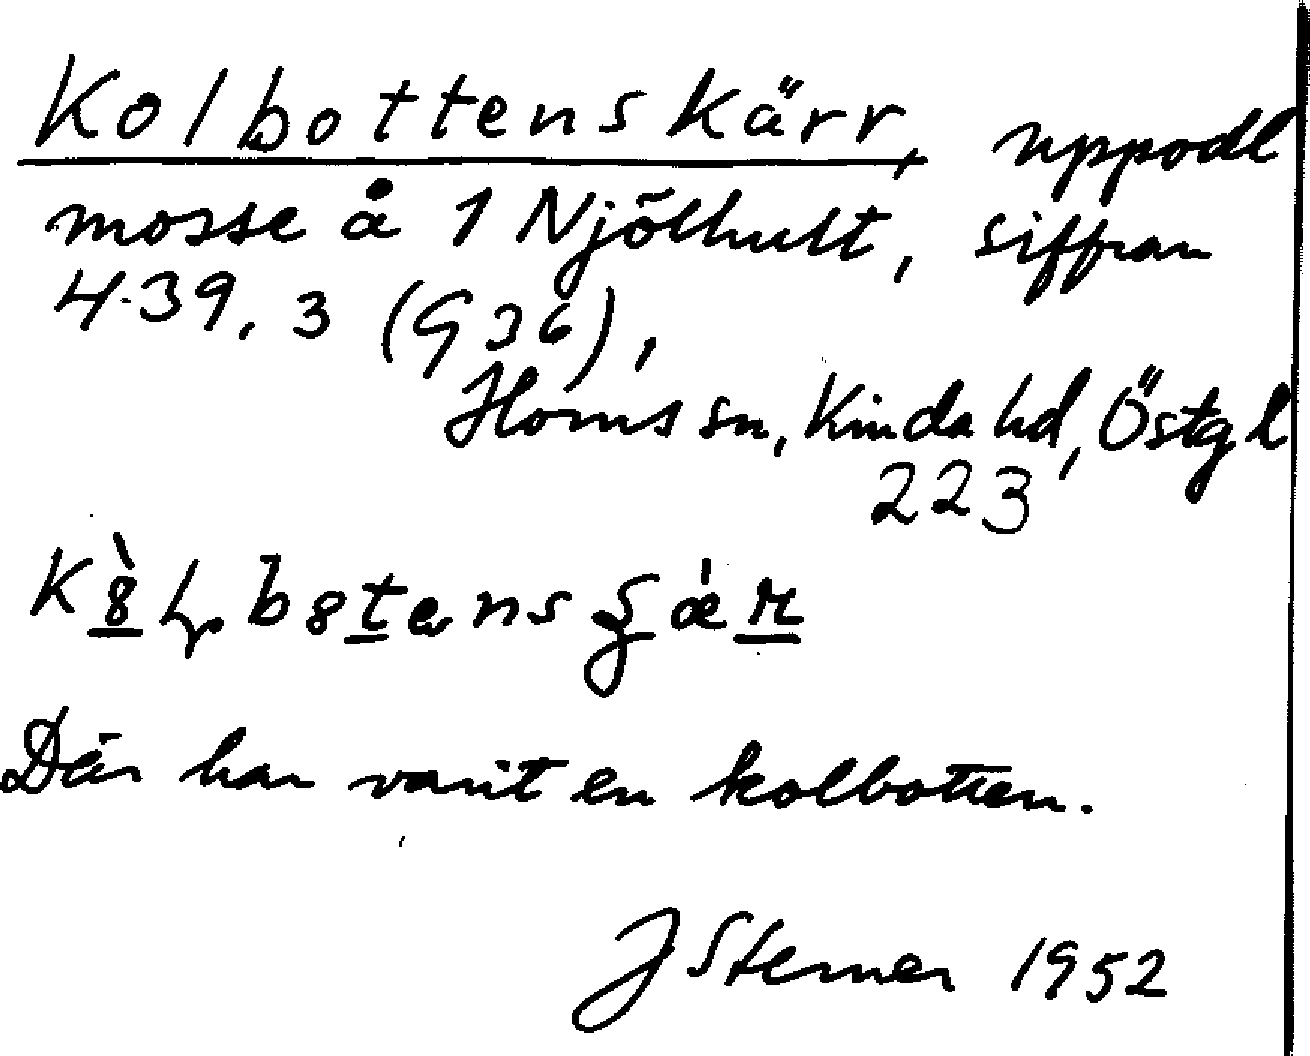 Kolbottenskärr, uppodl
mosse å 1 Njölhult, siffran
4.39, 3 (936),
Horns sn, Kinda hd, Östgl
223
Där har varit en kolbotten.
J Sterner 1952